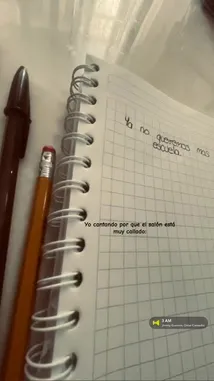 Ya no queremos mas
escuela...
Yo cantando por que el salón está
muy callado:
3 AM